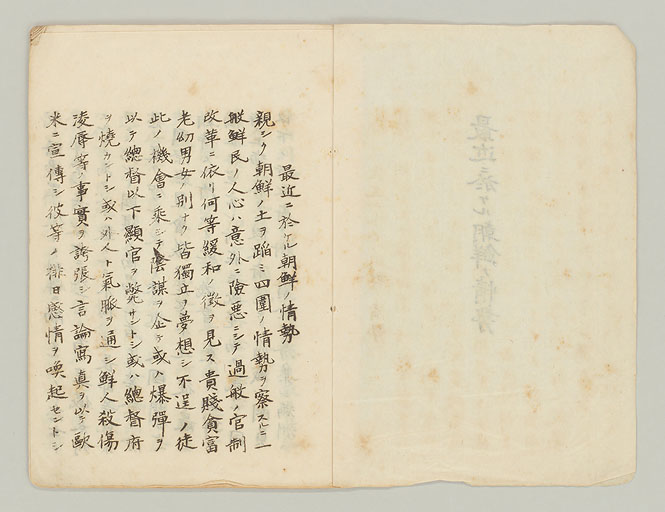 最近ニ於ケル朝鮮ノ情勢
親シク朝鮮ノ土ヲ蹈ミ四圍ノ情勢ヲ察スルニ一
般鮮民ノ人心ハ意外ニ險悪ニシテ過般ノ官制
改革ニ依リ何等緩和ノ徴ヲ見ス貴賤貧富
老幼男女ノ別ナク皆獨立ヲ夢想シ不逞ノ徒
此ノ機會ニ乘シテ陰謀ヲ企テ或ハ爆彈ヲ
以テ總督以下顯官ヲ斃サントシ或ハ總督府
ヲ燒カントシ或ハ外人ト氣脈ヲ通シ鮮人殺傷
凌辱等ノ事實ヲ誇張シ言論寫真ヲ以テ歐
米ニ宣傳シ彼等ノ排日感情ヲ喚起セントシ